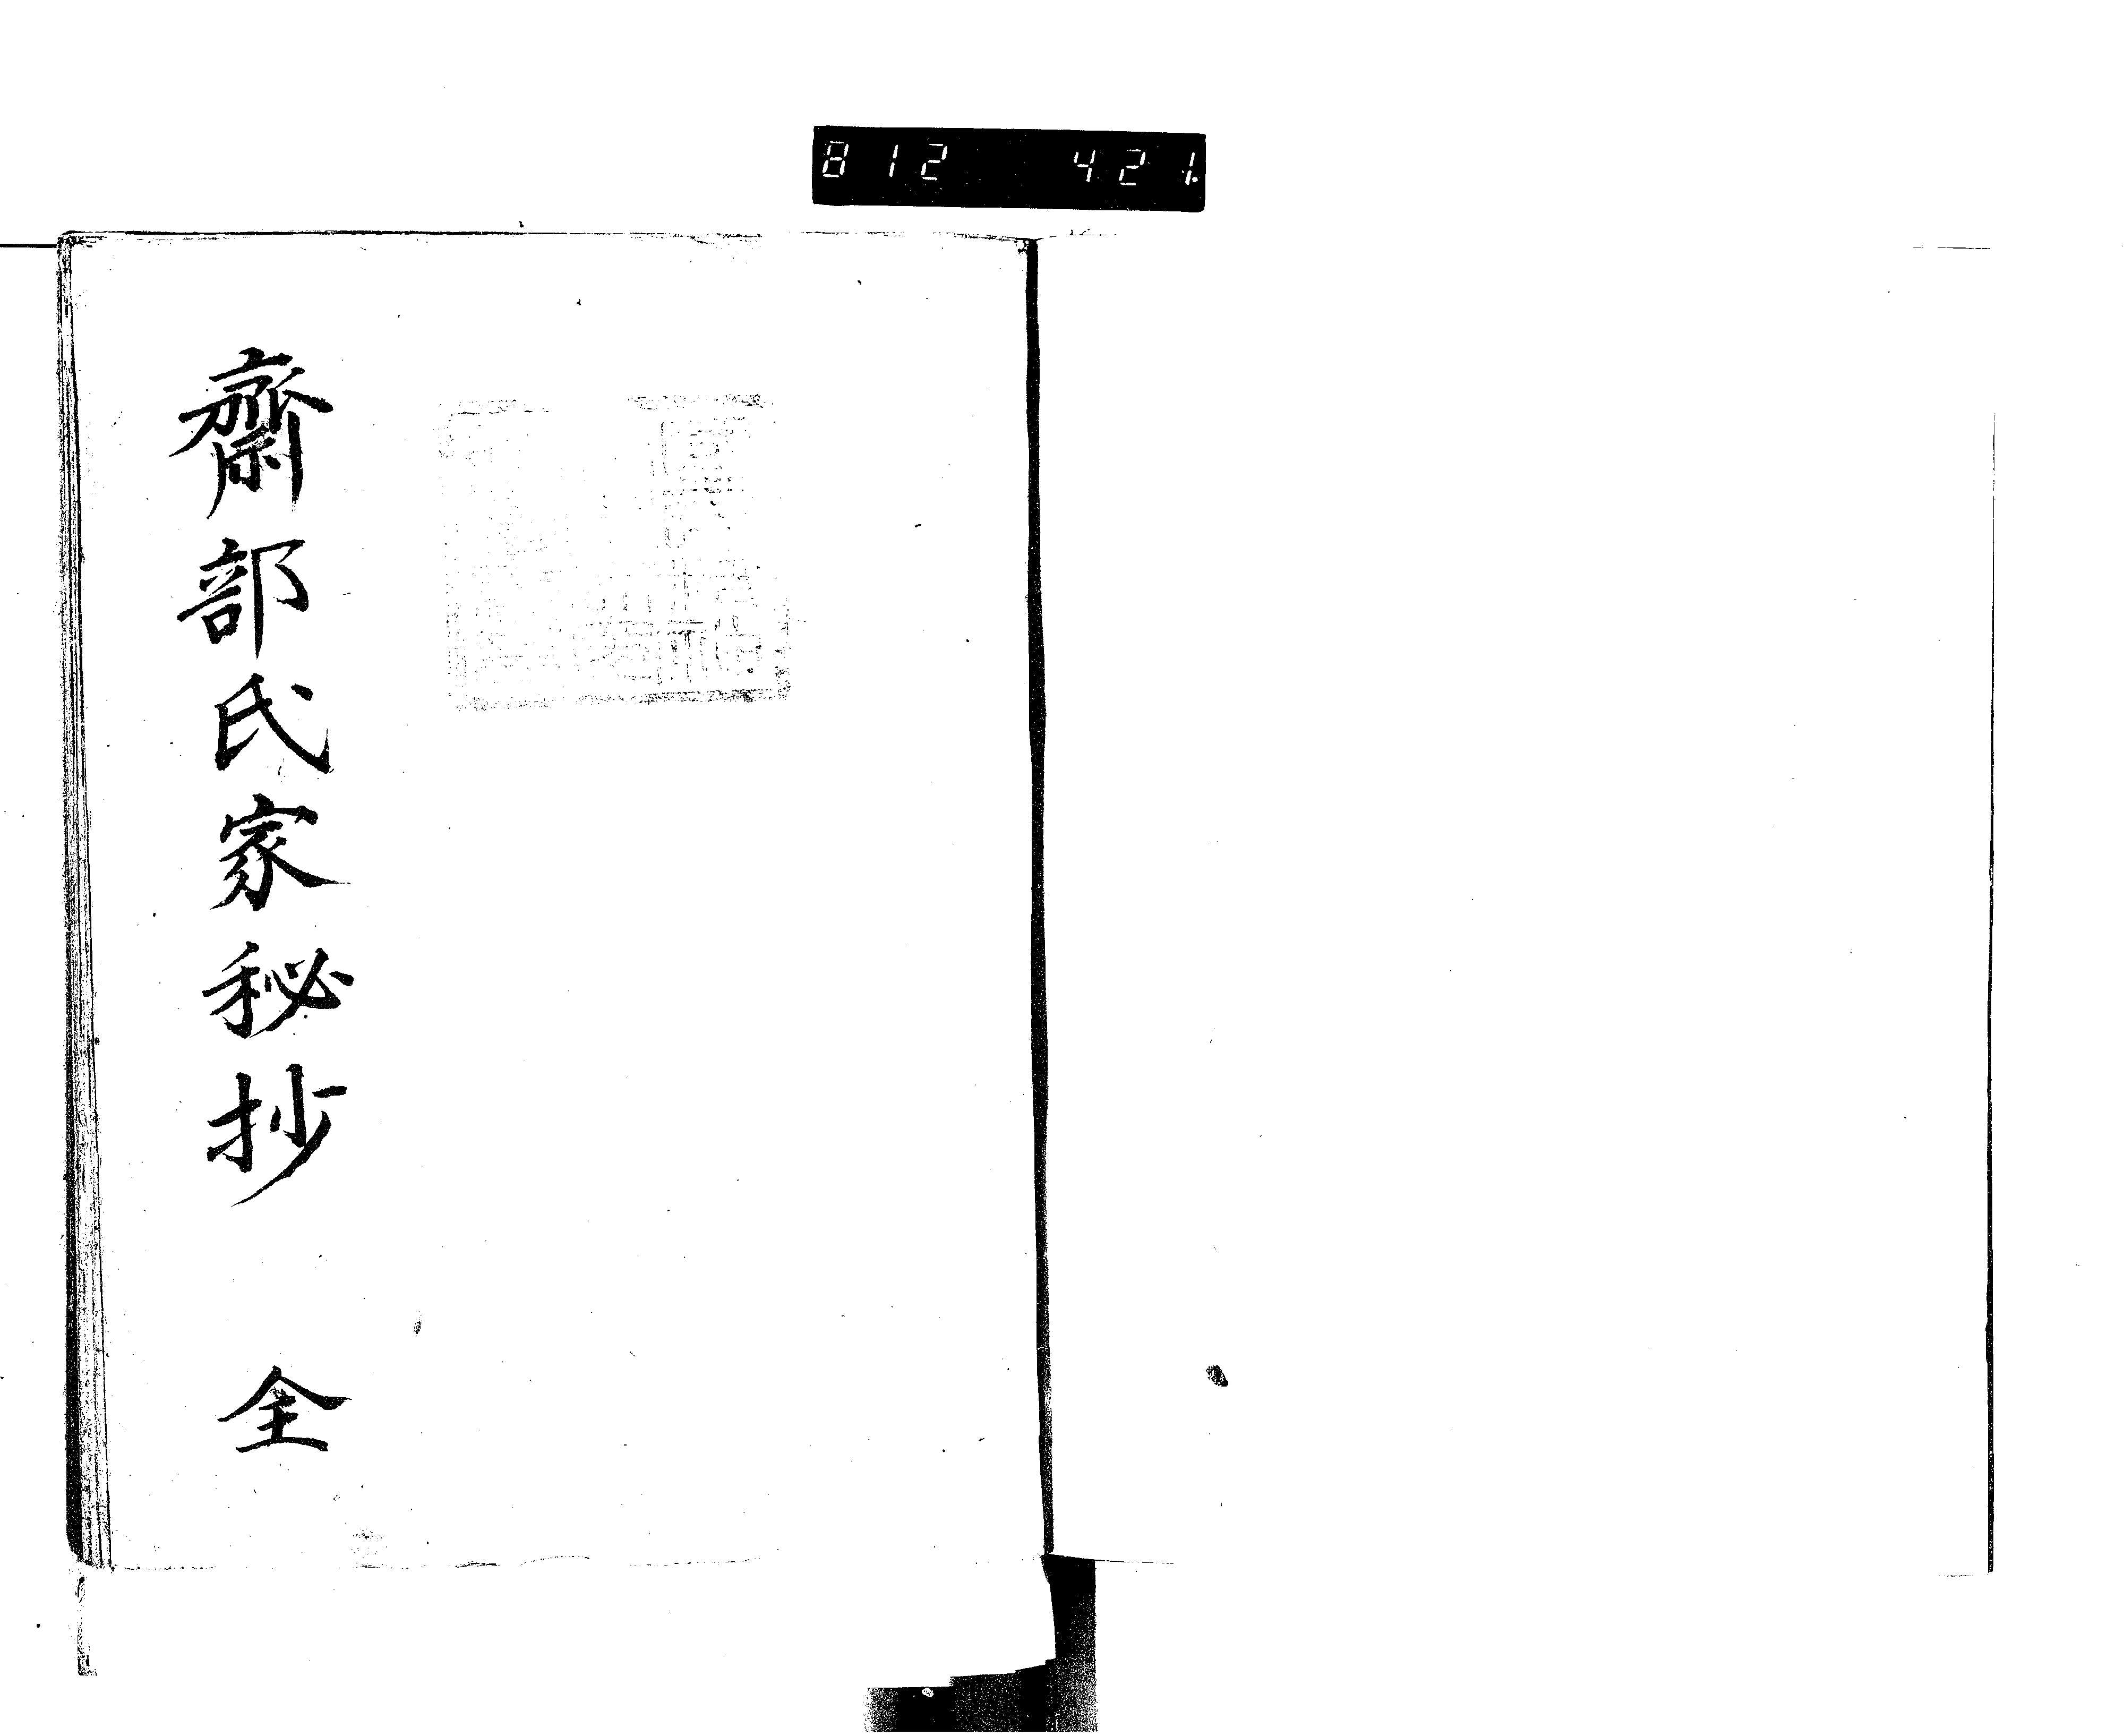 812 421.
齋部氏家秘抄 全